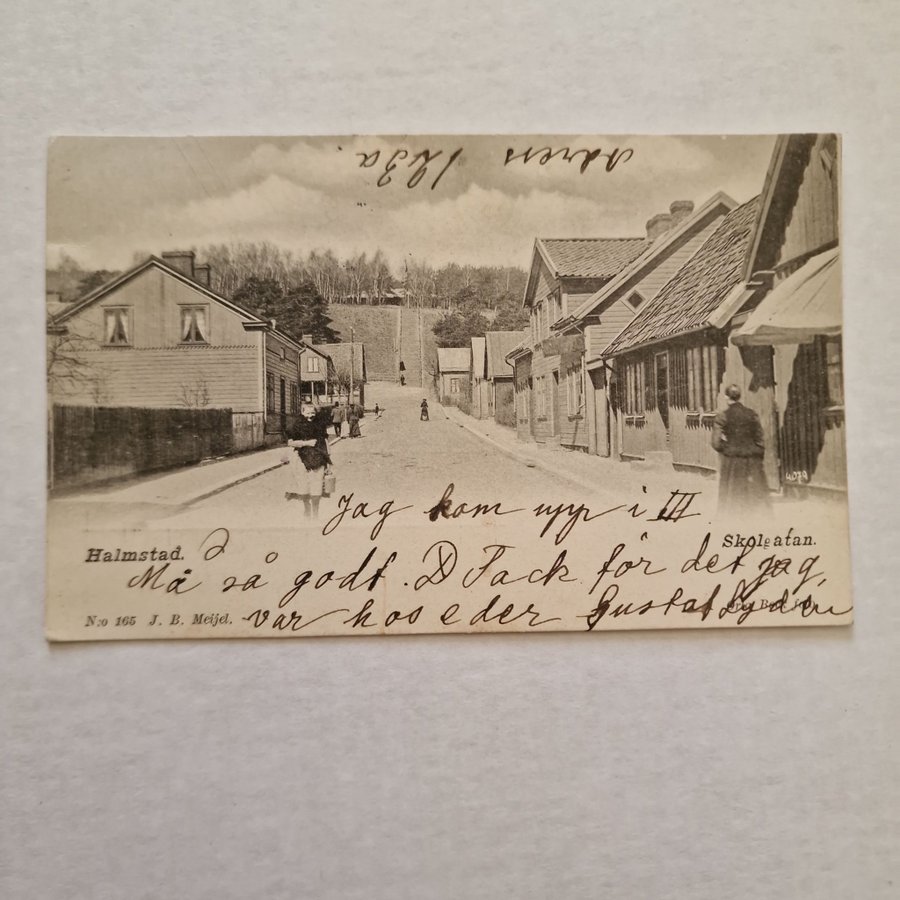 Adress 123a
Jag kom upp i III
Halmstad.
Skolgatan.
Må så godt. Tack för det jag
N:o 165 J. B. Meijel.
var hos eder Gustaf
4079